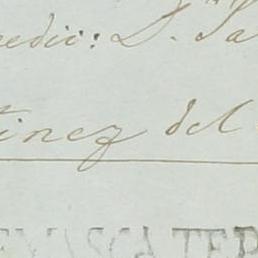 edic: D. Ja
inez del
EMASCATER